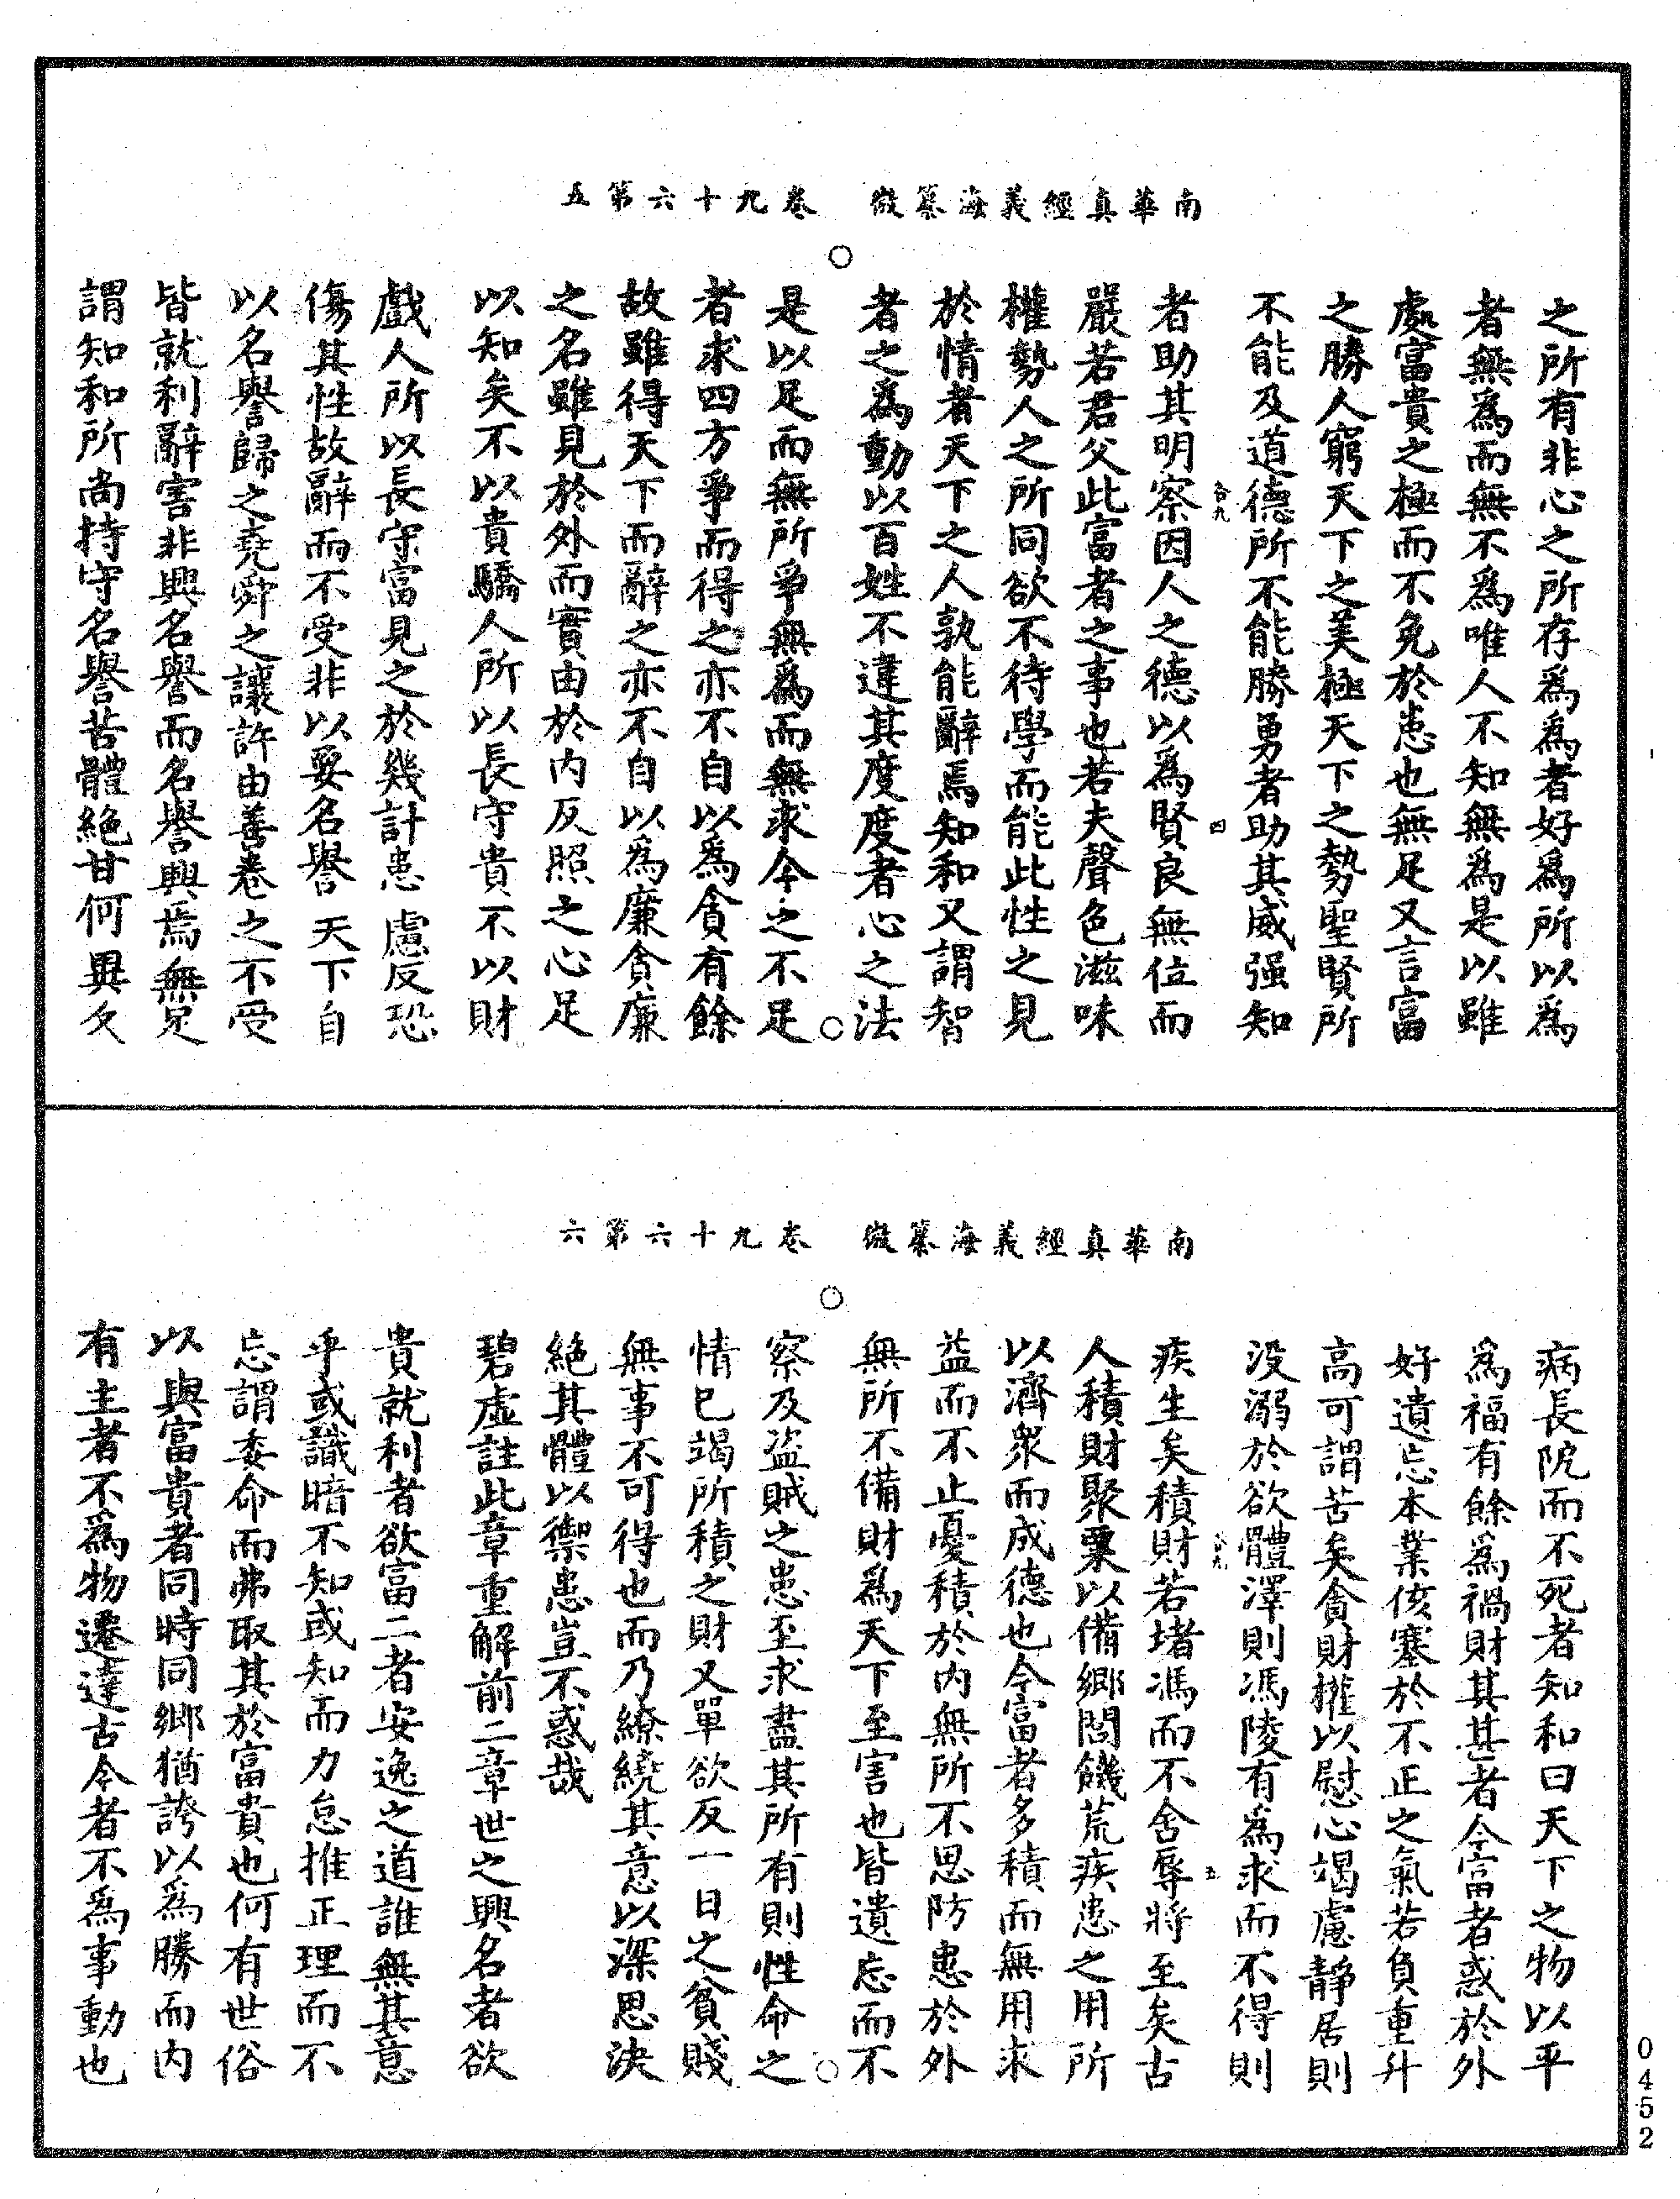 南華真經義海纂微　卷九十六第五
之所有非心之所存為為者好為所以為
者無為而無不為唯人不知無為是以雖
處富貴之極而不免於患也無足又言富
之勝人窮天下之美極天下之勢聖賢所
不能及道德所不能勝勇者助其威强知
者助其明察因人之德以為賢良無位而
嚴若君父此富者之事也若夫聲色滋味
權勢人之所同欲不待學而能此性之見
於情者天下之人孰能辭焉知和又謂智
者之為動以百姓不違其度度者心之法
是以足而無所爭無為而無求今之不足
者求四方爭而得之亦不自以為貪有餘
故雖得天下而辭之亦不自以為廉貪廉
之名雖見於外而實由於內反照之心足
以知矣不以貴驕人所以長守貴不以財
戲人所以長守富見之於幾計患慮反恐
傷其性故辭而不受非以要名譽天下自
以名譽歸之堯舜之讓許由善卷之不受
皆就利辭害非興名譽而名譽興焉無足
謂知和所尚持守名譽苦體絕甘何異久
四
南華真經義海纂微　卷九十六第六
病長阨而不死者知和曰天下之物以平
為福有餘為禍財其甚者今富者惑於外
好遺忘本業侅塞於不正之氣若負重升
高可謂苦矣貪財權以慰心竭慮靜居則
沒溺於欲體澤則馮陵有為求而不得則
疾生矣積財若堵馮而不舍辱將至矣古
人積財聚粟以備鄉閭饑荒疾患之用所
以濟眾而成德也今富者多積而無用求
益而不止憂積於內無所不思防患於外
無所不備財為天下至害也皆遺忘而不
察及盜賊之患至求盡其所有則性命之
情已竭所積之財又單欲反一日之貧賤
無事不可得也而乃繚繞其意以深思決
絕其體以禦患豈不惑哉
碧虛註此章重解前二章世之興名者欲
貴就利者欲富二者安逸之道誰無其意
乎或識暗不知或知而力怠推正理而不
忘謂委命而弗取其於富貴也何有世俗
以與富貴者同時同鄉猶誇以為勝而內
有主者不為物遷達古今者不為事動也
五
0452